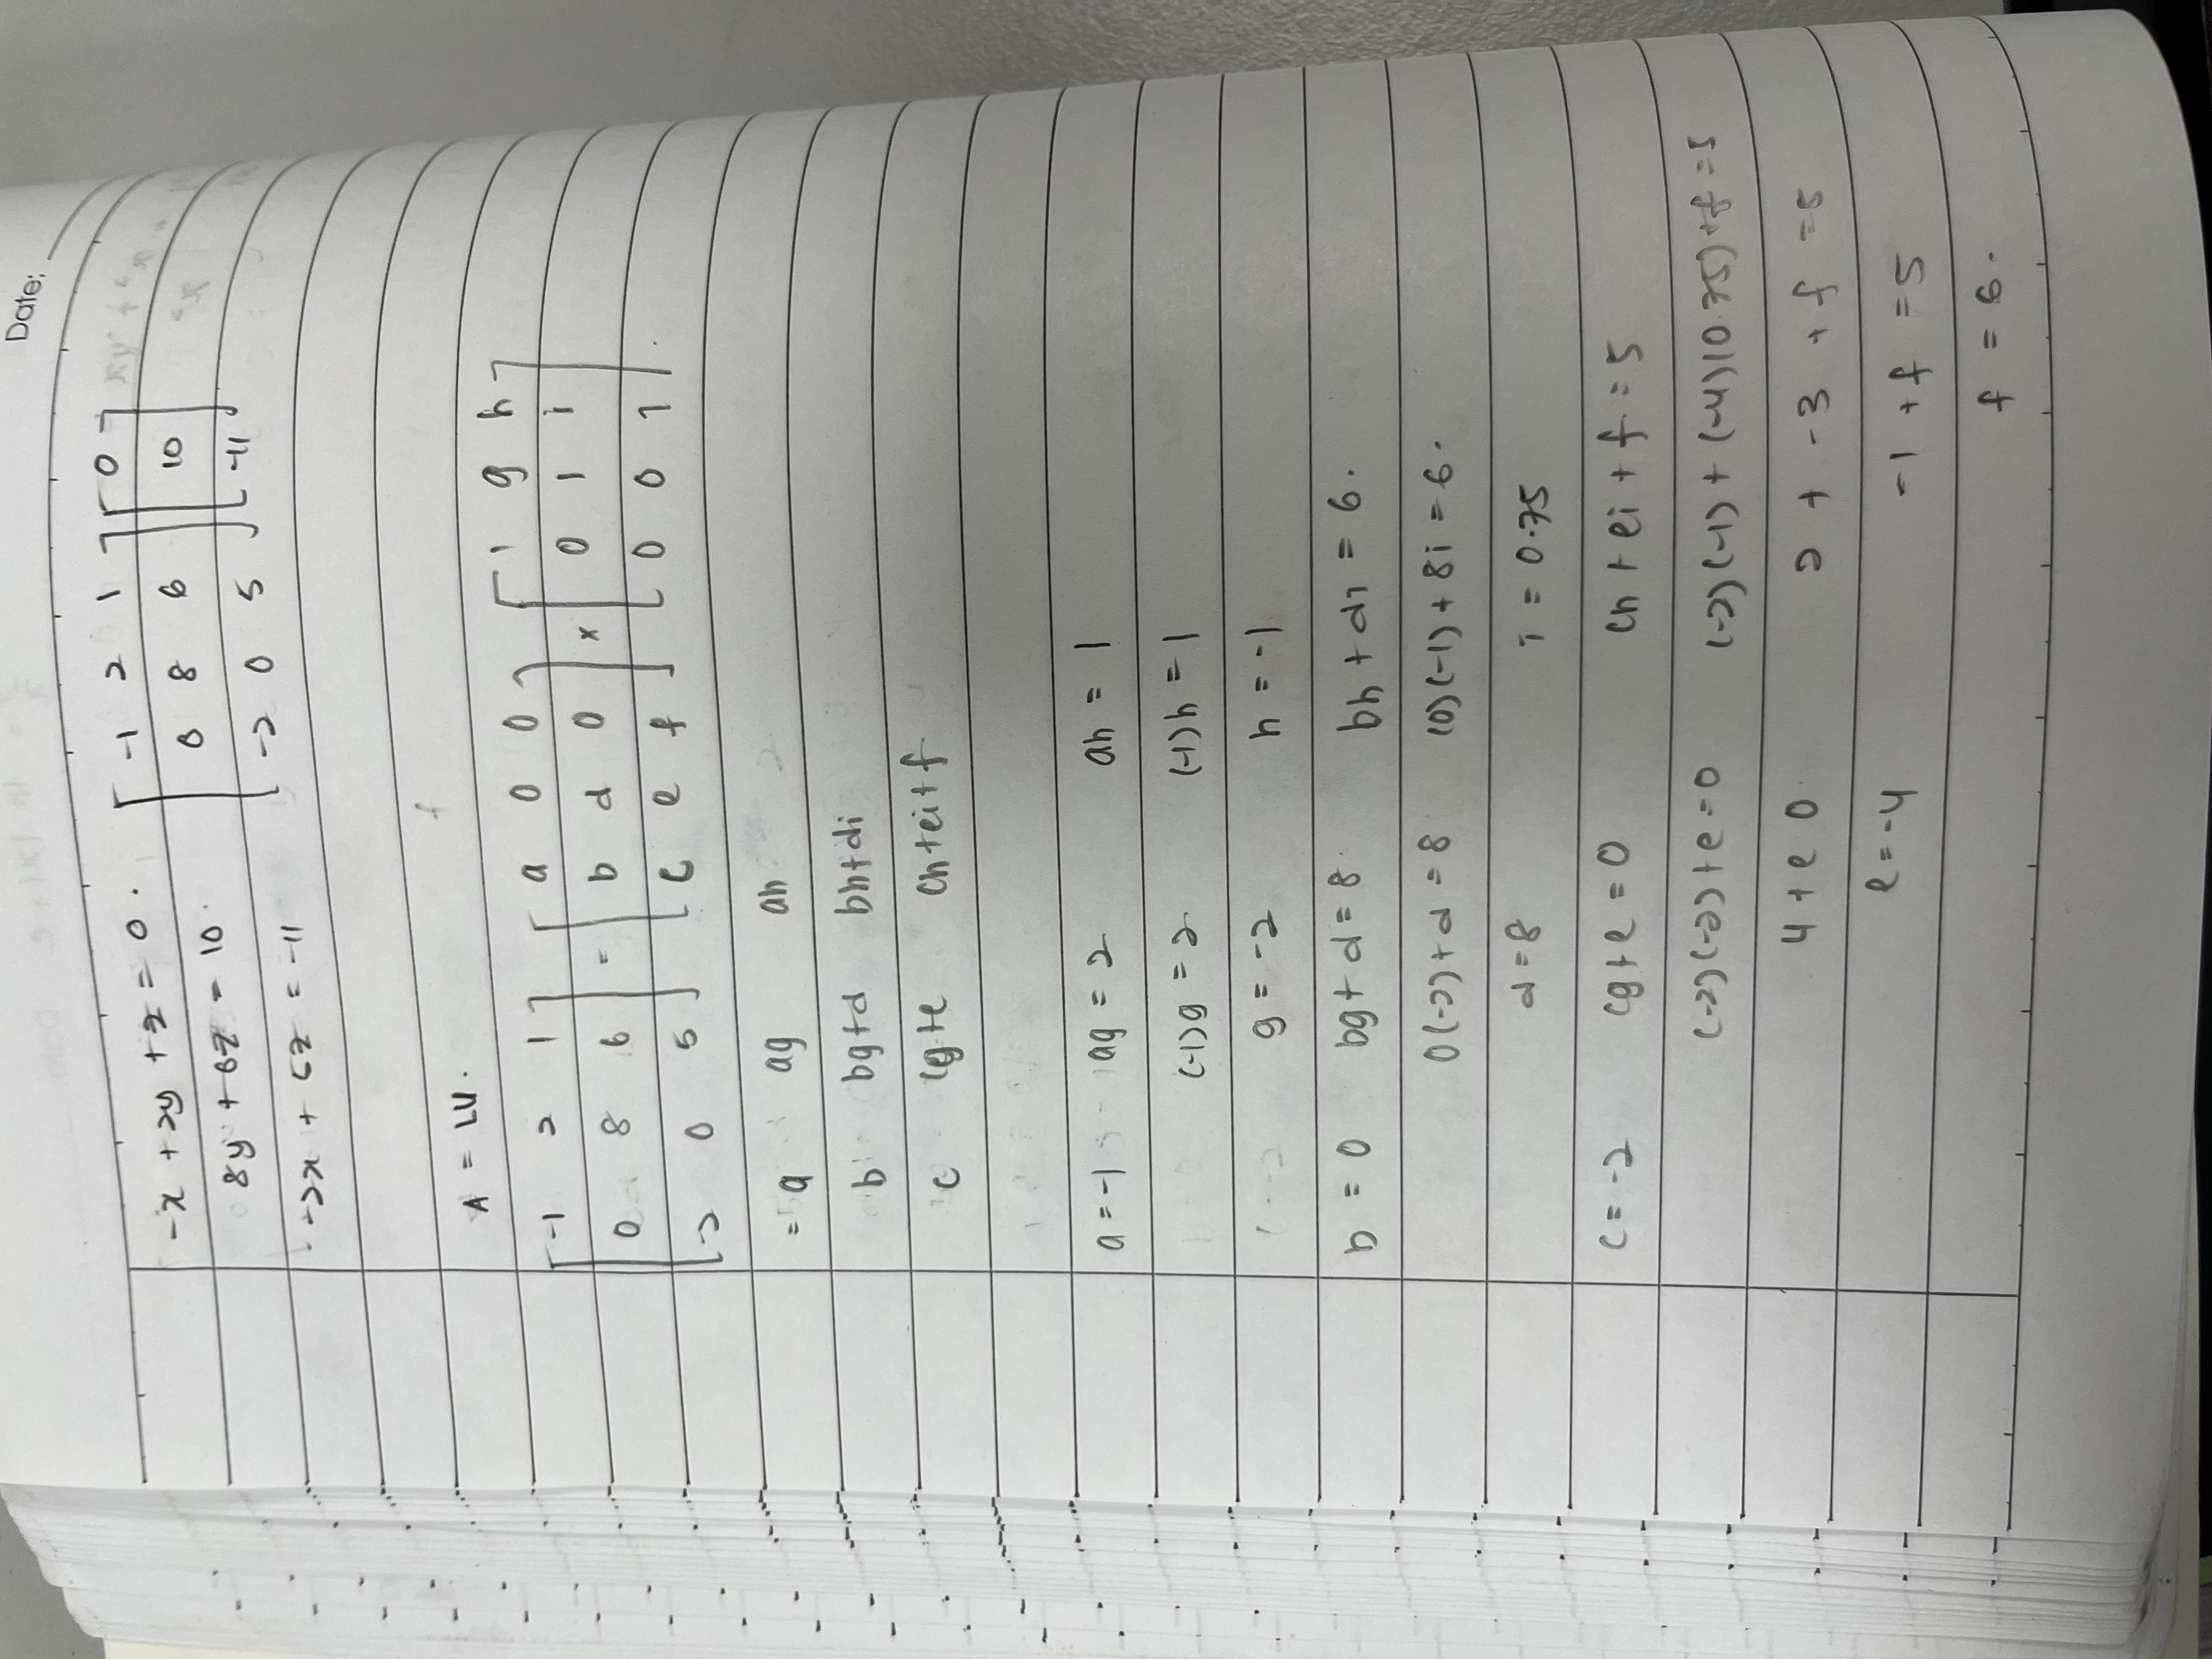 Date:
-x + 2y + z = 0. [ -1 2 1 ] [ 0 ]
8y + 6z = 10. 0 8 6 10
-2x + 5z = -11 [ -2 0 5 ] [ -11 ]
A = LU.
[ -1 2 1 ] [ a 0 0 ] [ 1 g h ]
0 8 6 = b d 0 x 0 1 i
[ -2 0 5 ] [ c e f ] [ 0 0 1 ].
= a ag ah
b bg+d bh+di
c cg+e ch+ei+f
a = -1 ag = 2 ah = 1
(-1)g = 2 (-1)h = 1
g = -2 h = -1
b = 0 bg + d = 8. bh + di = 6.
0(-2)+d = 8 (0)(-1) + 8i = 6.
d = 8 i = 0.75
c = -2 cg+e = 0 ch + ei + f = 5
(-2)(-2)+e = 0 (-2)(-1) + (-4)(0.75)+f = 5
4 + e 0 2 + -3 + f = 5
e = -4 -1 + f = 5
f = 6.